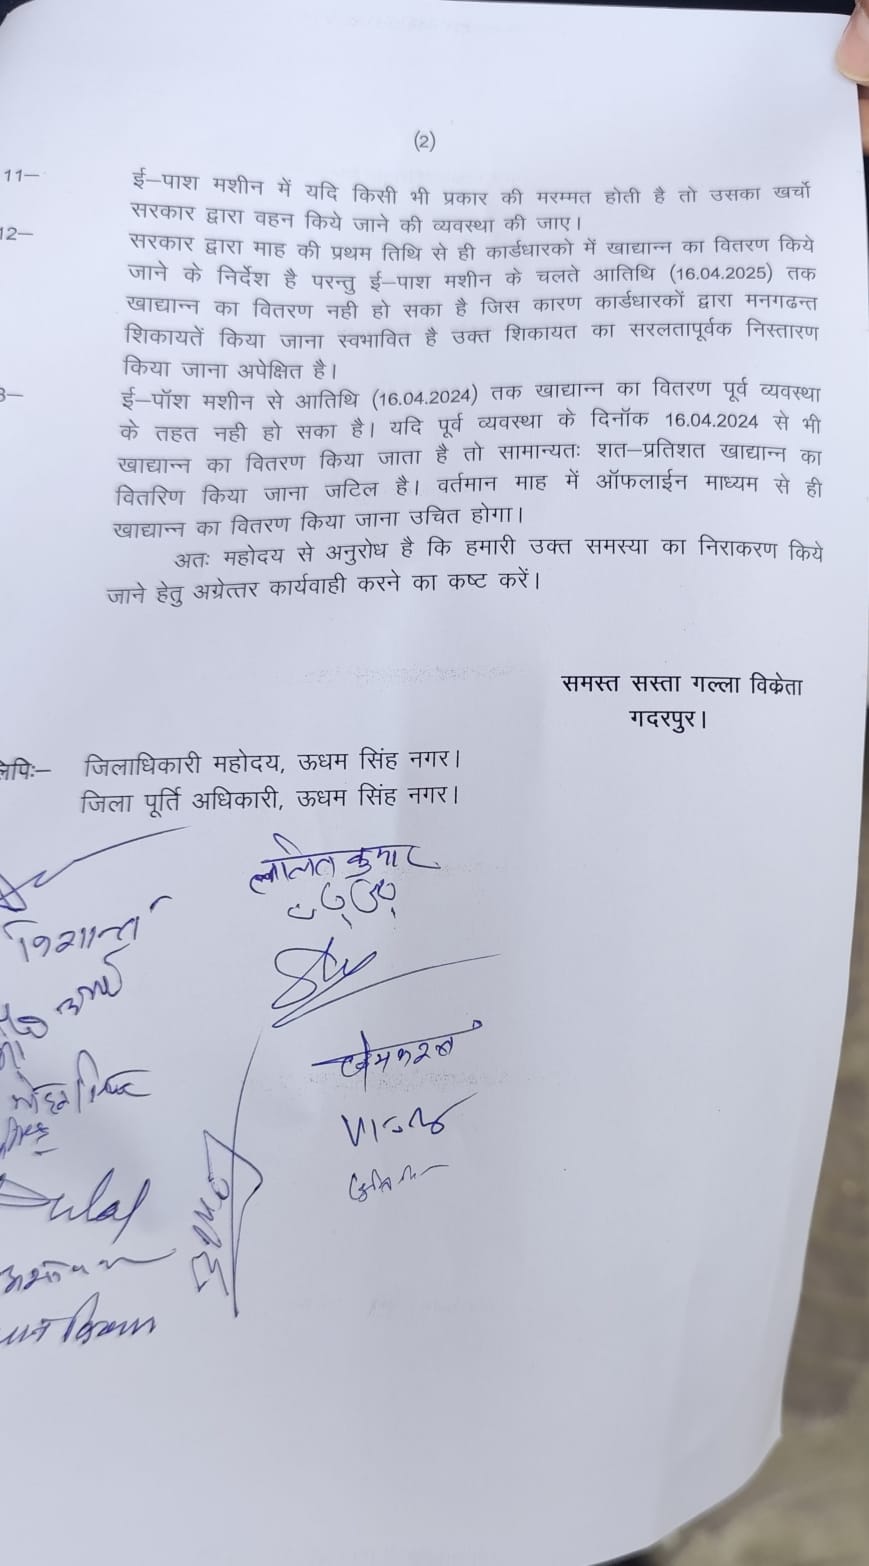 (2)
11— ई–पाश मशीन में यदि किसी भी प्रकार की मरम्मत होती है तो उसका खर्चा
सरकार द्वारा वहन किये जाने की व्यवस्था की जाए।
12— सरकार द्वारा माह की प्रथम तिथि से ही कार्डधारको में खाद्यान्न का वितरण किये
जाने के निर्देश है परन्तु ई–पाश मशीन के चलते आतिथि (16.04.2025) तक
खाद्यान्न का वितरण नही हो सका है जिस कारण कार्डधारकों द्वारा मनगढन्त
शिकायतें किया जाना स्वभावित है उक्त शिकायत का सरलतापूर्वक निस्तारण
किया जाना अपेक्षित है।
3— ई–पॉश मशीन से आतिथि (16.04.2024) तक खाद्यान्न का वितरण पूर्व व्यवस्था
के तहत नही हो सका है। यदि पूर्व व्यवस्था के दिनॉक 16.04.2024 से भी
खाद्यान्न का वितरण किया जाता है तो सामान्यतः शत–प्रतिशत खाद्यान्न का
वितरिण किया जाना जटिल है। वर्तमान माह में ऑफलाईन माध्यम से ही
खाद्यान्न का वितरण किया जाना उचित होगा।
अतः महोदय से अनुरोध है कि हमारी उक्त समस्या का निराकरण किये
जाने हेतु अग्रेत्तर कार्यवाही करने का कष्ट करें।
समस्त सस्ता गल्ला विक्रेता
गदरपुर।
लिपिः– जिलाधिकारी महोदय, ऊधम सिंह नगर।
जिला पूर्ति अधिकारी, ऊधम सिंह नगर।
ललित कुमार